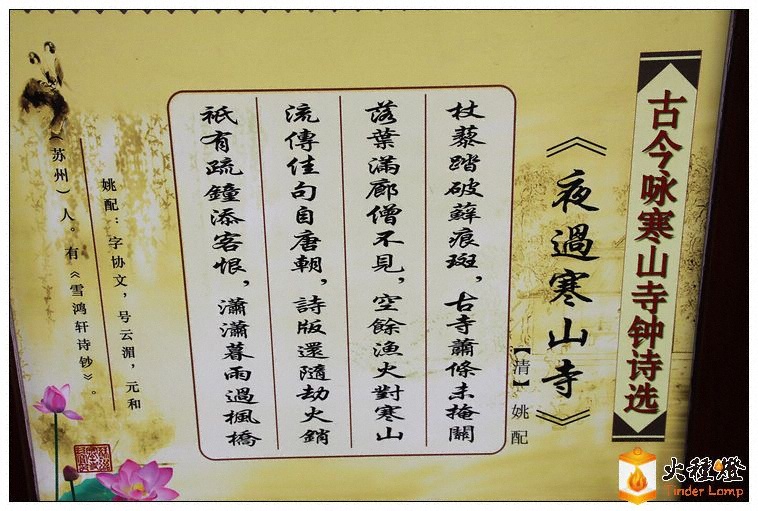 古今咏寒山寺钟诗选
《夜過寒山寺》
【清】姚配
杖藜踏破蘚痕斑，古寺蕭條未掩關
落葉滿廊僧不見，空餘漁火對寒山
流傳佳句自唐朝，詩版還隨劫火銷
祇有疏鐘添客恨，瀟瀟暮雨過楓橋
姚配：字协文，号云湄，元和
（苏州）人。有《雪鸿轩诗钞》。
火種燈
Tinder Lamp